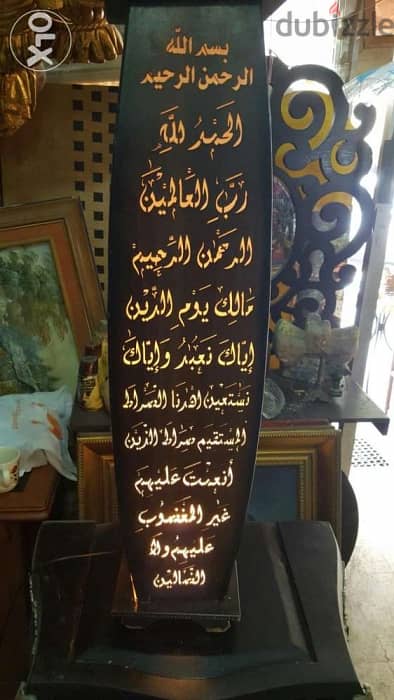 dubizzle
OLX
بسم الله
الرحمن الرحيم
الحمد للهِ
رَبِّ العَالَمِيْنَ
الرَحْمٰنِ الرَّحِيمِ
مَالِكِ يَوْمِ الدِّيْنِ
إيَّاكَ نَعْبُدُ وَإيَّاكَ
نَسْتَعِين اهْدِنَا الصِّرَاطَ
المُسْتَقِيمَ صِرَاطَ الذِيْنَ
أنعَمْتَ عَلَيهِمْ
غَيرِ المَغضُوبِ
عَليهِم ولا
الضَّالِّين